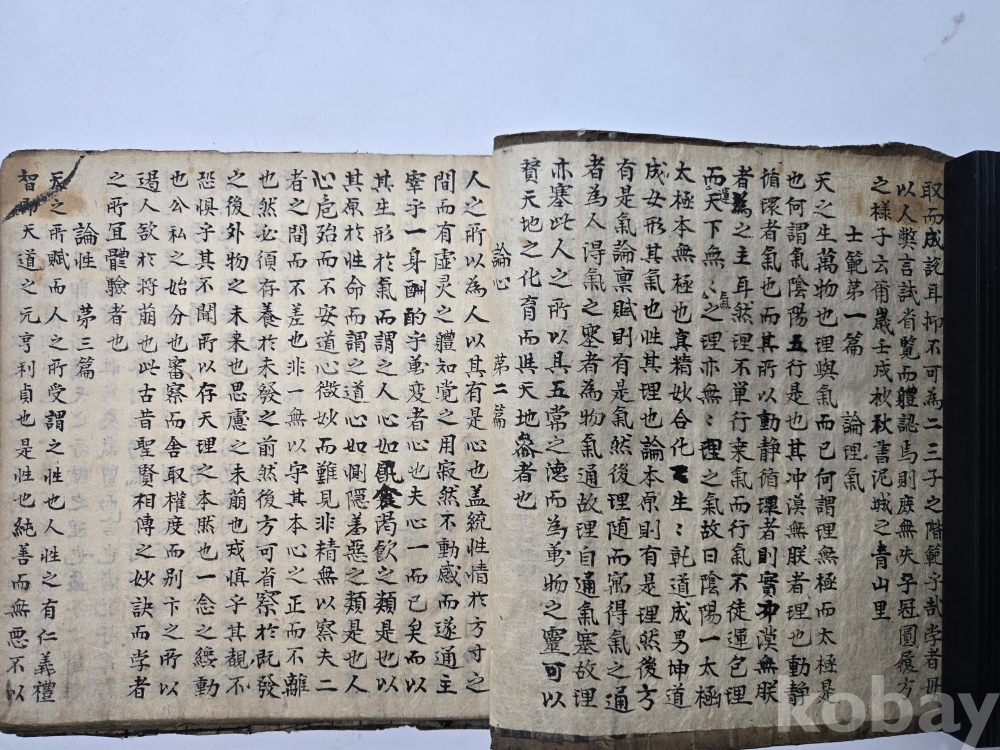 取而成說耳抑不可為二三子之階範乎哉学者毋
以人獘言試省覽而體認焉則庶無失乎冠圓履方
之樣子云爾歲壬戌秋秋書泥城之青山里
士範第一篇 論理氣
天之生萬物也理與氣而已何謂理無極而太極是
也何謂氣陰陽五行是也其冲漠無朕者理也動静
循環者氣也而其所以動静循環者則實冲漠無朕
者為之主耳然理不單行乘氣而行氣不徒運包理
而運天下無無氣之理亦無無理之氣故曰陰陽一太極
太極本無極也真精妙合化化生生乾道成男坤道
成女形其氣也性其理也論本原則有是理然後方
有是氣論禀賦則有是氣然後理随而寓得氣之通
者為人得氣之塞者為物氣通故理自通氣塞故理
亦塞此人之所以具五常之德而為萬物之靈可以
賛天地之化育而與天地叅者也
論心 第二篇
人之所以為人以其有是心也盖統性情於方寸之
間而有虚灵之軆知覚之用寂然不動感而遂通主
宰乎一身酬酌乎萬变者心也夫心一而已矣而以
其生形於氣而謂之人心如飢食渴飲之類是也以
其原於性命而謂之道心如惻隱羞惡之類是也人
心危殆而不安道心微妙而難見非精無以察夫二
者之間而不差也非一無以守其本心之正而不離
也然必須存養於未發之前然後方可省察於既發
之後外物之未来也思慮之未萠也戒慎乎其覩不
恐惧乎其不聞所以存天理之本然也一念之纔動
也公私之始分也審察而舎取權度而别卞之所以
遏人欲於将萠也此古昔聖賢相傳之妙訣而学者
之所宜體驗者也
論性 第三篇
天之所賦而人之所受謂之性也人性之有仁義禮
智即天道之元亨利貞也是性也純善而無悪不以
kobay